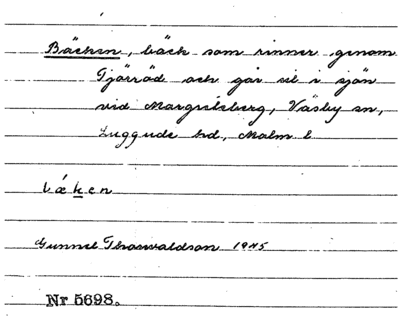 Bäcken, bäck som rinner genom
Tjörröd och går ut i sjön
vid Margreteberg, Väsby sn,
Luggude hd, Malm l
bæken
Gunnel Thorwaldson 1945
Nr 5698.